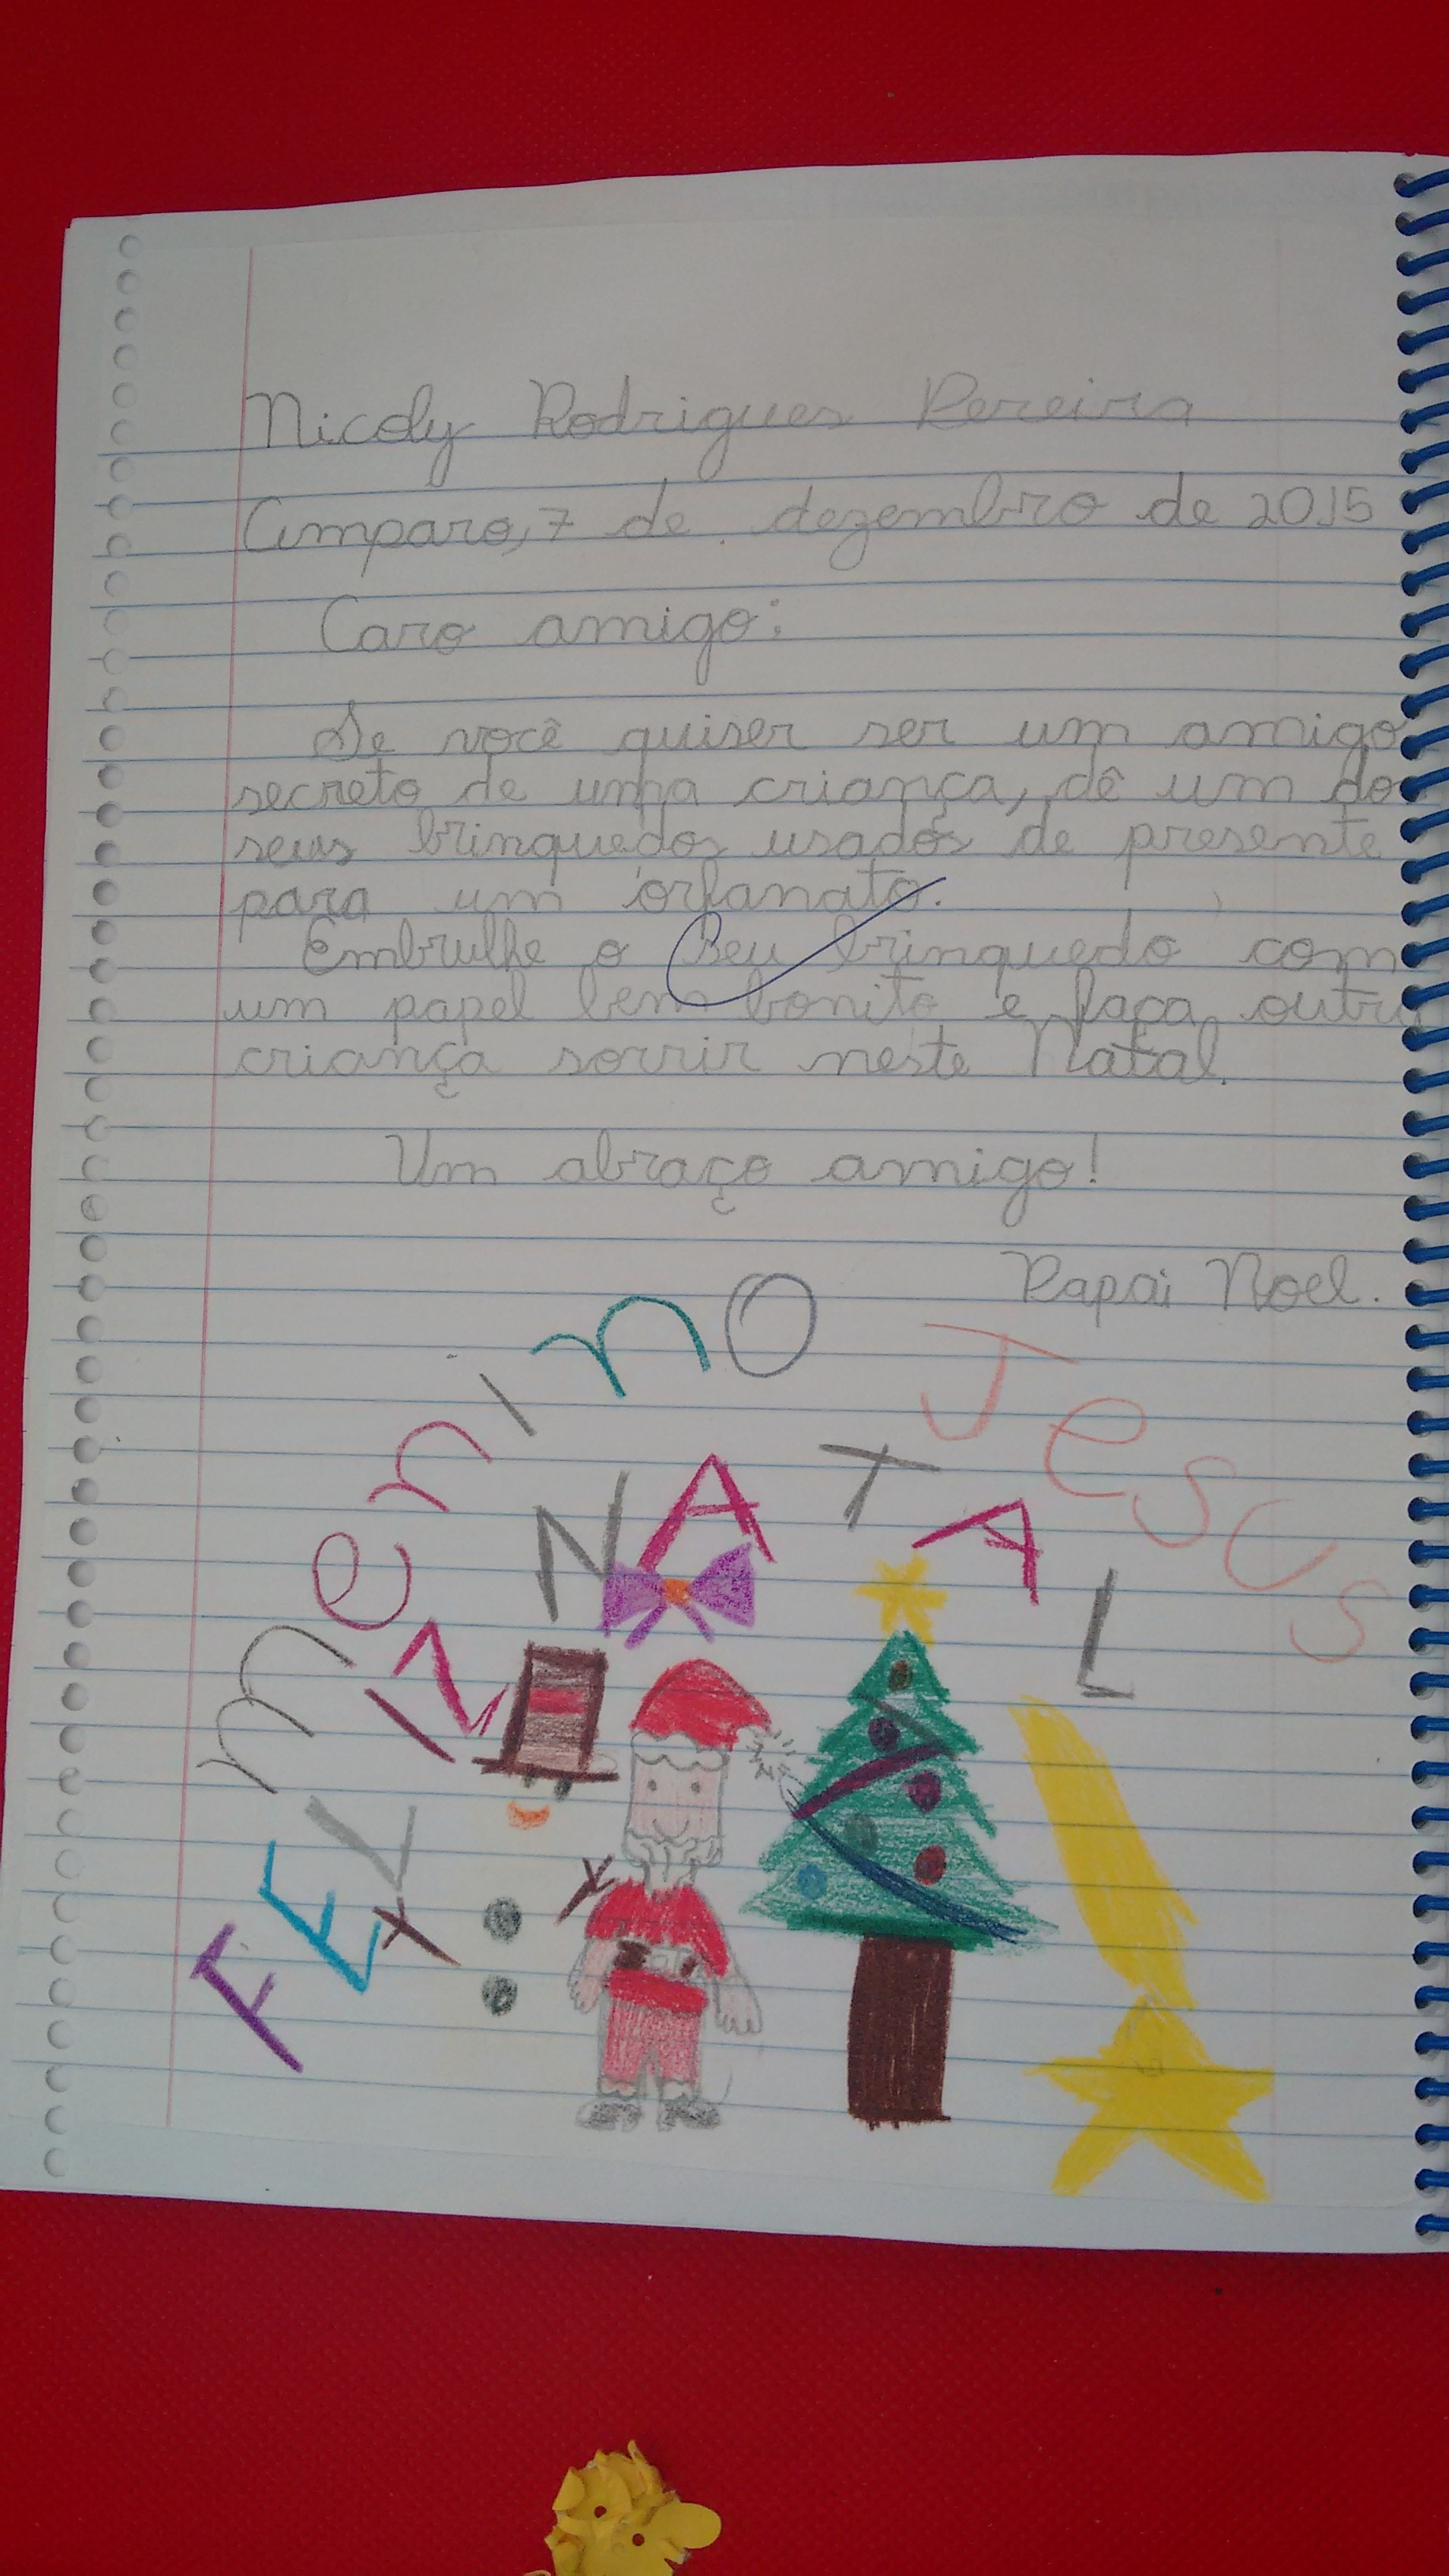 Nicoly Rodrigues Pereira
Amparo, 7 de dezembro de 2015
Caro amigo:
Se você quiser ser um amigo
secreto de uma criança, dê um do
seus brinquedos usados de presente
para um orfanato.
Embrulhe o seu brinquedo com
um papel bem bonito e faça outra
criança sorrir neste Natal.
Um abraço amigo!
Papai Noel.
menino Jesus
FELIZ NATAL